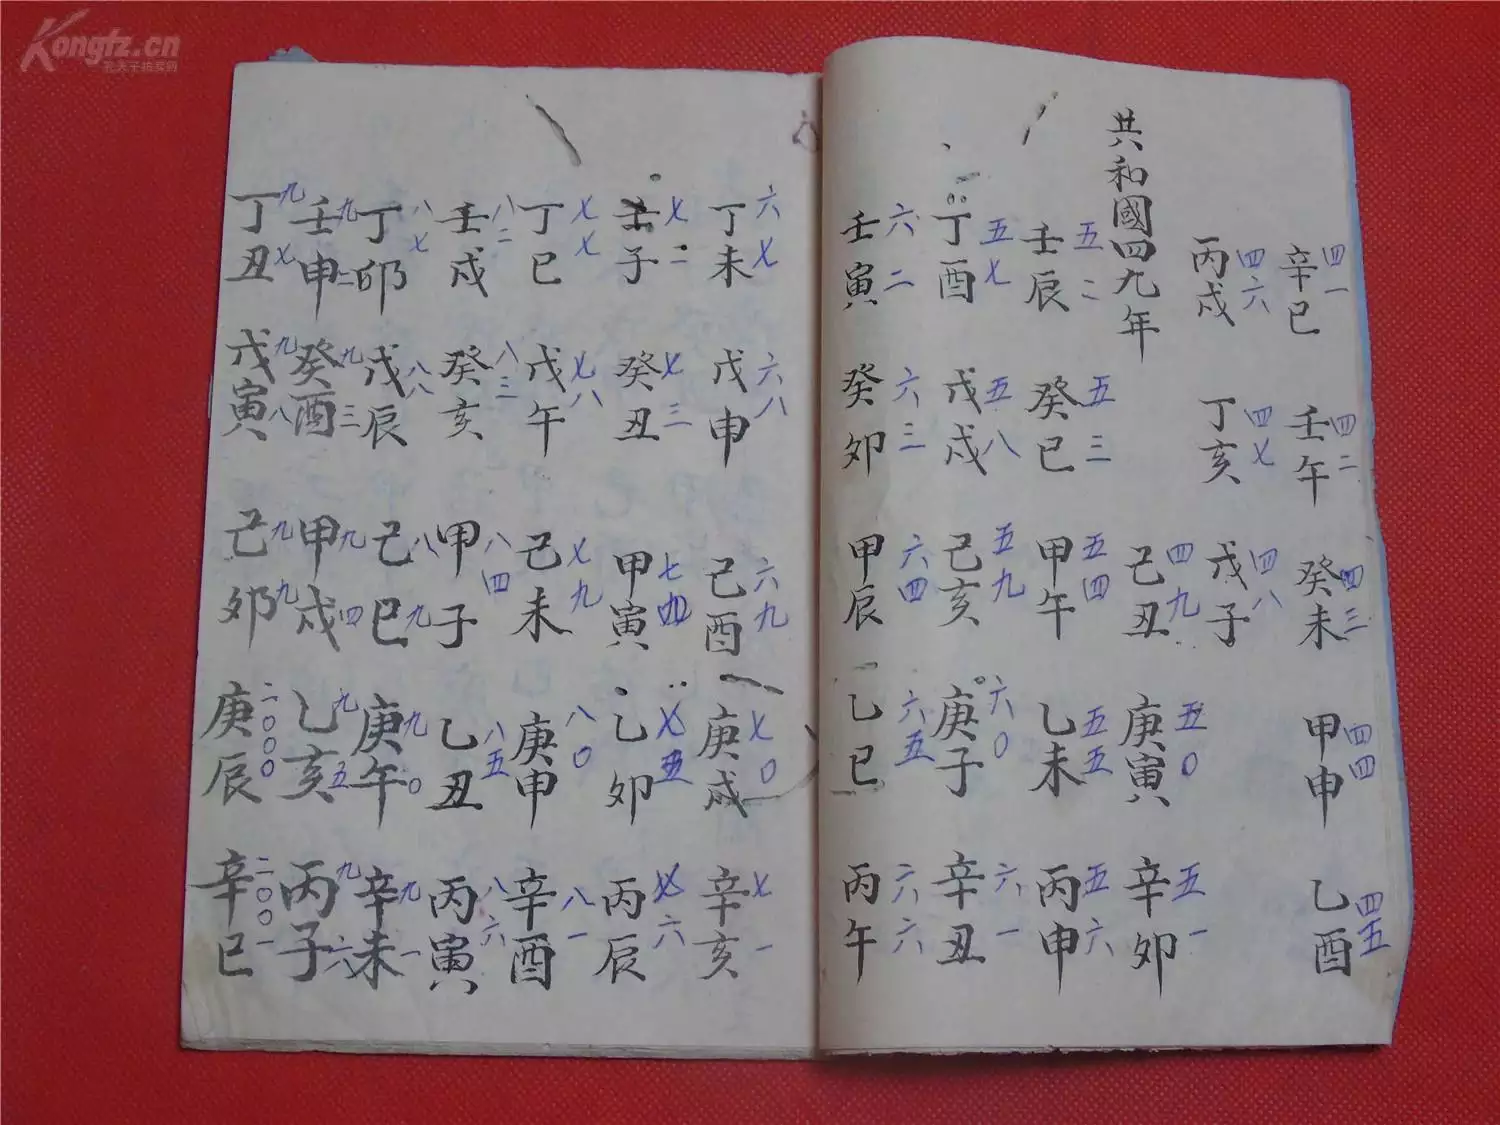 Kongfz.cn
孔夫子拍卖网
辛巳 四一
壬午 四二
癸未 四三
甲申 四四
乙酉 四五
丙戌 四六
丁亥 四七
戊子 四八
共和國四九年
己丑 四九
庚寅 五〇
辛卯 五一
壬辰 五二
癸巳 五三
甲午 五四
乙未 五五
丙申 五六
丁酉 五七
戊戌 五八
己亥 五九
庚子 六〇
辛丑 六一
壬寅 六二
癸卯 六三
甲辰 六四
乙巳 六五
丙午 六六
丁未 六七
戊申 六八
己酉 六九
庚戌 七〇
辛亥 七一
壬子 七二
癸丑 七三
甲寅 七四
乙卯 七五
丙辰 七六
丁巳 七七
戊午 七八
己未 七九
庚申 八〇
辛酉 八一
壬戌 八二
癸亥 八三
甲子 八四
乙丑 八五
丙寅 八六
丁卯 八七
戊辰 八八
己巳 八九
庚午 九〇
辛未 九一
壬申 九二
癸酉 九三
甲戌 九四
乙亥 九五
丙子 九六
丁丑 九七
戊寅 九八
己卯 九九
庚辰 二〇〇〇
辛巳 二〇〇一